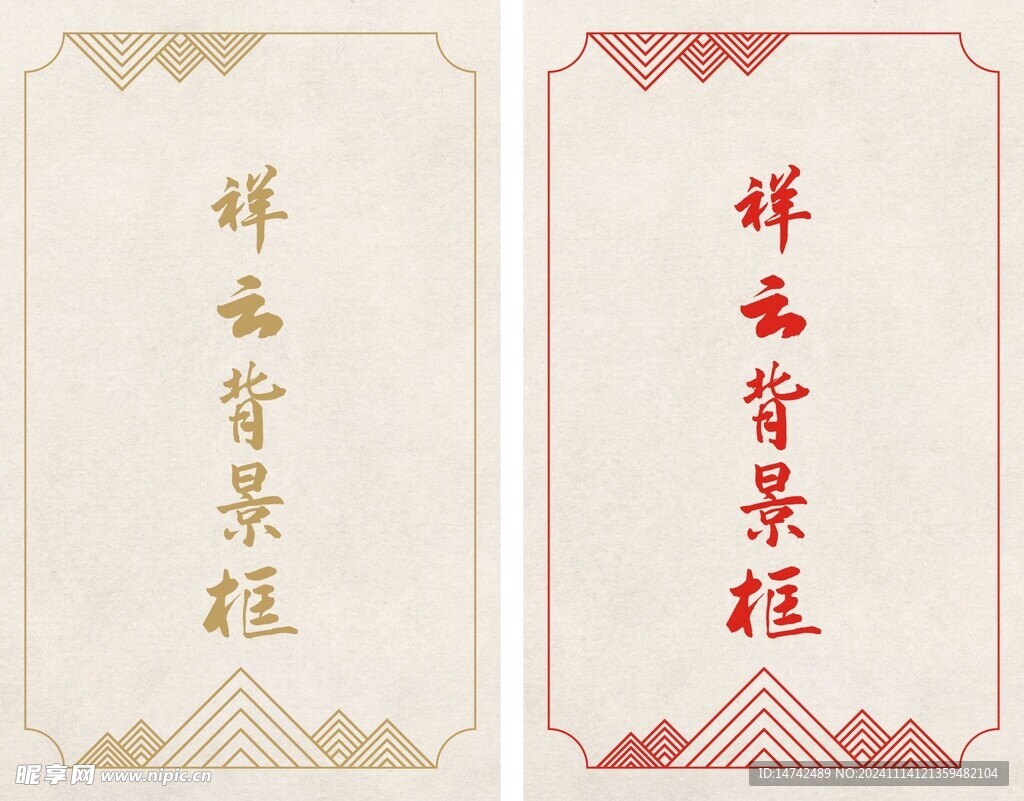 祥云背景框
祥云背景框
昵享网 www.nipic.cn
ID:14742489 NO:20241114121359482104